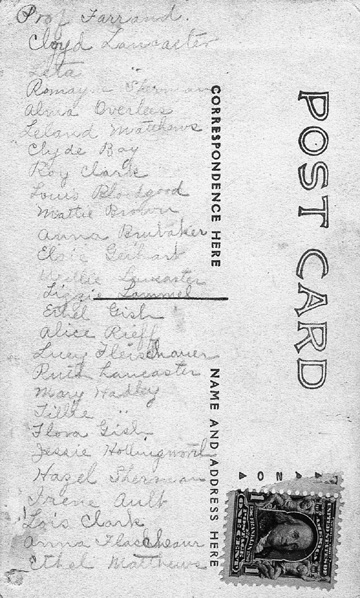 Prof Farrand.
Cloyd Lancaster
Leta "
Romayn Sherman
Alvia Overlees
Leland Matthews
Clyde Bay
Roy Clark
Louis Bloodgood
Mattie Brown
Anna Brubaker
Elsie Geihart
Lancaster
Lizzie Sammel
Ethel Gish
Alice Rieff
Lucy Fleischauer
Ruth Lancaster
Mary Hadley
Tillie "
Flora Gish
Jessie Hollingworth
Hazel Sherman
Irene Ault
Lois Clark
Anna
Ethel Matthews
CORRESPONDENCE HERE
NAME AND ADDRESS HERE
POST CARD